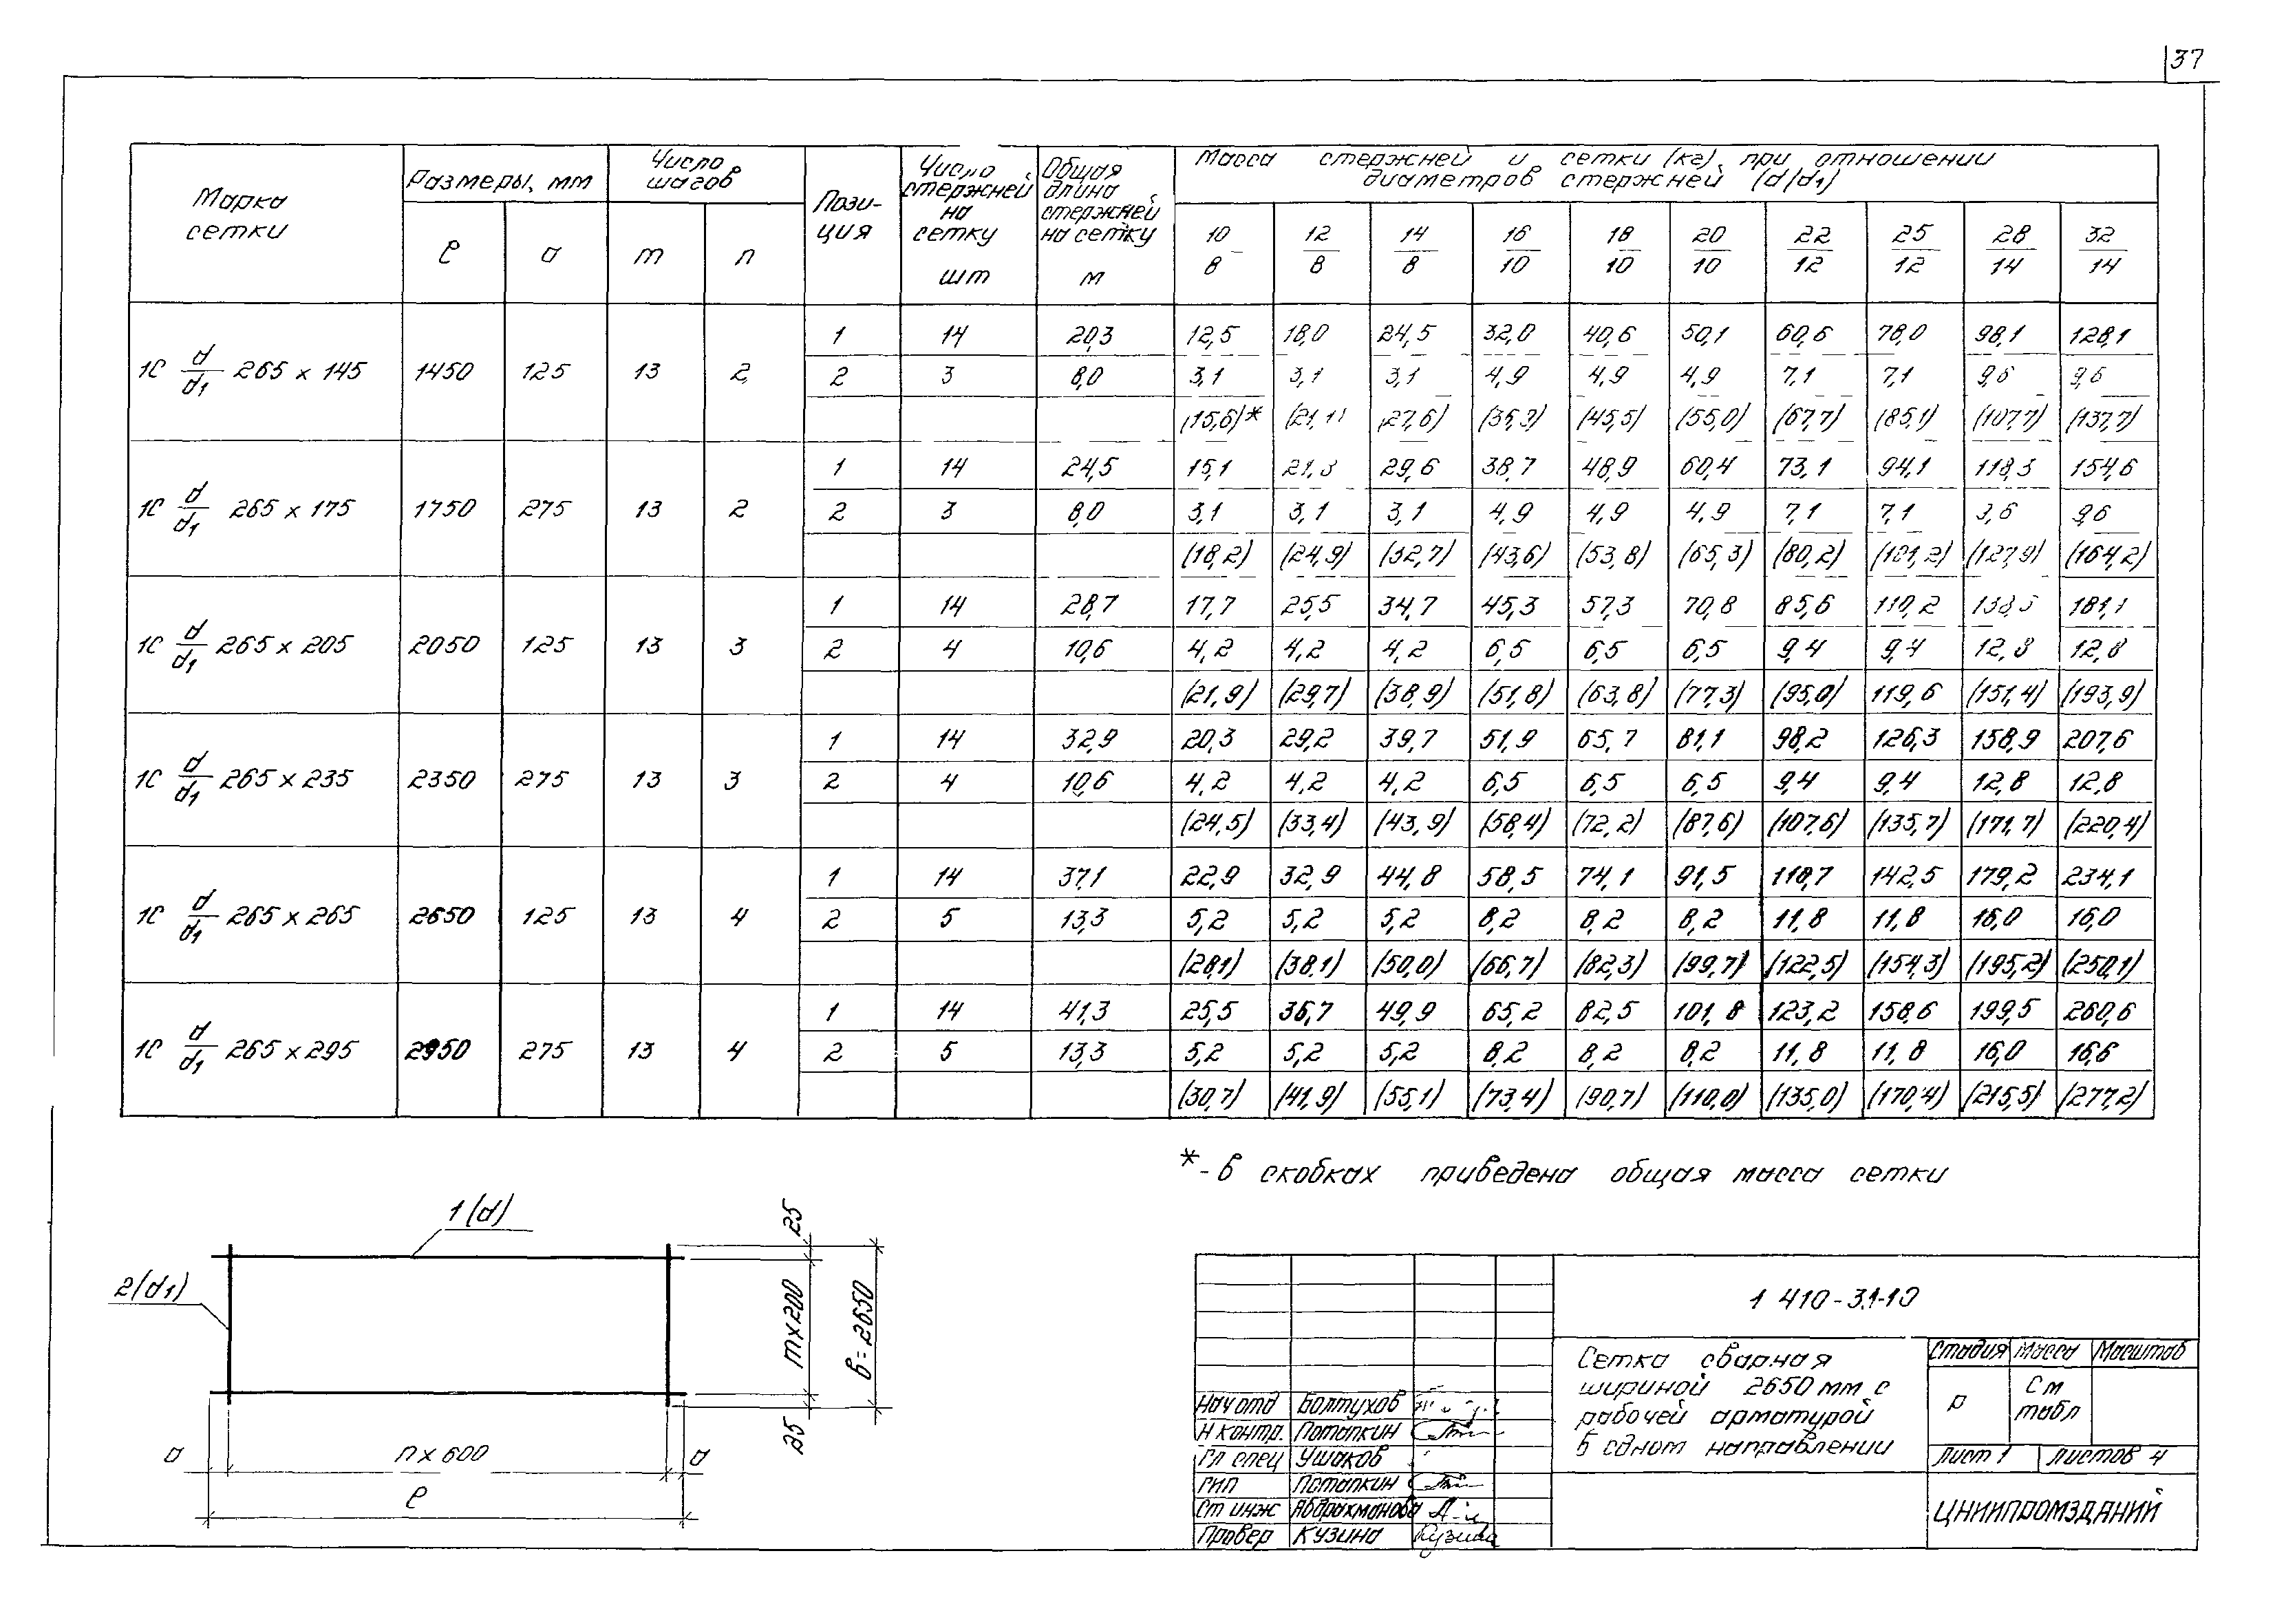 37
Марка сетки | Размеры, мм | Число шагов | Пози-ция | Число стержней на сетку шт | Общая длина стержней на сетку м | Масса стержней и сетки (кг), при отношении диаметров стержней (d/d1)
ℓ | a | m | n | 10/8 | 12/8 | 14/8 | 16/10 | 18/10 | 20/10 | 22/12 | 25/12 | 28/14 | 32/14
1 | 14 | 20,3 | 12,5 | 18,0 | 24,5 | 32,0 | 40,6 | 50,1 | 60,6 | 78,0 | 98,1 | 128,1
1С d/d1 265 x 145 | 1450 | 125 | 13 | 2 | 2 | 3 | 8,0 | 3,1 | 3,1 | 3,1 | 4,9 | 4,9 | 4,9 | 7,1 | 7,1 | 9,6 | 9,6
(15,6)* | (21,1) | (27,6) | (36,9) | (45,5) | (55,0) | (67,7) | (85,1) | (107,7) | (137,7)
1 | 14 | 24,5 | 15,1 | 21,8 | 29,6 | 38,7 | 48,9 | 60,4 | 73,1 | 94,1 | 118,3 | 154,6
1С d/d1 265 x 175 | 1750 | 275 | 13 | 2 | 2 | 3 | 8,0 | 3,1 | 3,1 | 3,1 | 4,9 | 4,9 | 4,9 | 7,1 | 7,1 | 9,6 | 9,6
(18,2) | (24,9) | (32,7) | (43,6) | (53,8) | (65,3) | (80,2) | (101,2) | (127,9) | (164,2)
1 | 14 | 28,7 | 17,7 | 25,5 | 34,7 | 45,3 | 57,3 | 70,8 | 85,6 | 110,2 | 138,6 | 181,1
1С d/d1 265 x 205 | 2050 | 125 | 13 | 3 | 2 | 4 | 10,6 | 4,2 | 4,2 | 4,2 | 6,5 | 6,5 | 6,5 | 9,4 | 9,4 | 12,8 | 12,8
(21,9) | (29,7) | (38,9) | (51,8) | (63,8) | (77,3) | (95,0) | 119,6 | (151,4) | (193,9)
1 | 14 | 32,9 | 20,3 | 29,2 | 39,7 | 51,9 | 65,7 | 81,1 | 98,2 | 126,3 | 158,9 | 207,6
1С d/d1 265 x 235 | 2350 | 275 | 13 | 3 | 2 | 4 | 10,6 | 4,2 | 4,2 | 4,2 | 6,5 | 6,5 | 6,5 | 9,4 | 9,4 | 12,8 | 12,8
(24,5) | (33,4) | (43,9) | (58,4) | (72,2) | (87,6) | (107,6) | (135,7) | (171,7) | (220,4)
1 | 14 | 37,1 | 22,9 | 32,9 | 44,8 | 58,5 | 74,1 | 91,5 | 110,7 | 142,5 | 179,2 | 234,1
1С d/d1 265 x 265 | 2650 | 125 | 13 | 4 | 2 | 5 | 13,3 | 5,2 | 5,2 | 5,2 | 8,2 | 8,2 | 8,2 | 11,8 | 11,8 | 16,0 | 16,0
(28,1) | (38,1) | (50,0) | (66,7) | (82,3) | (99,7) | (122,5) | (154,3) | (195,2) | (250,1)
1 | 14 | 41,3 | 25,5 | 36,7 | 49,9 | 65,2 | 82,5 | 101,8 | 123,2 | 158,6 | 199,5 | 260,6
1С d/d1 265 x 295 | 2950 | 275 | 13 | 4 | 2 | 5 | 13,3 | 5,2 | 5,2 | 5,2 | 8,2 | 8,2 | 8,2 | 11,8 | 11,8 | 16,0 | 16,6
(30,7) | (41,9) | (55,1) | (73,4) | (90,7) | (110,0) | (135,0) | (170,4) | (215,5) | (277,2)
*- в скобках приведена общая масса сетки
1(d)
2(d1)
25
m x 200
в = 2650
25
a
n x 600
a
ℓ
1 410-3.1-10
Сетка сварная
шириной 2650 мм с
рабочей арматурой
в одном направлении
Стадия | Масса | Масштаб
Р | См табл
Лист 1 | Листов 4
ЦНИИПРОМЗДАНИЙ
Нач отд | Болтухов
Н контр. | Потапкин
Гл спец | Ушаков
ГИП | Потапкин
Ст инж | Абдрахманова
Провер | Кузина | Кузина